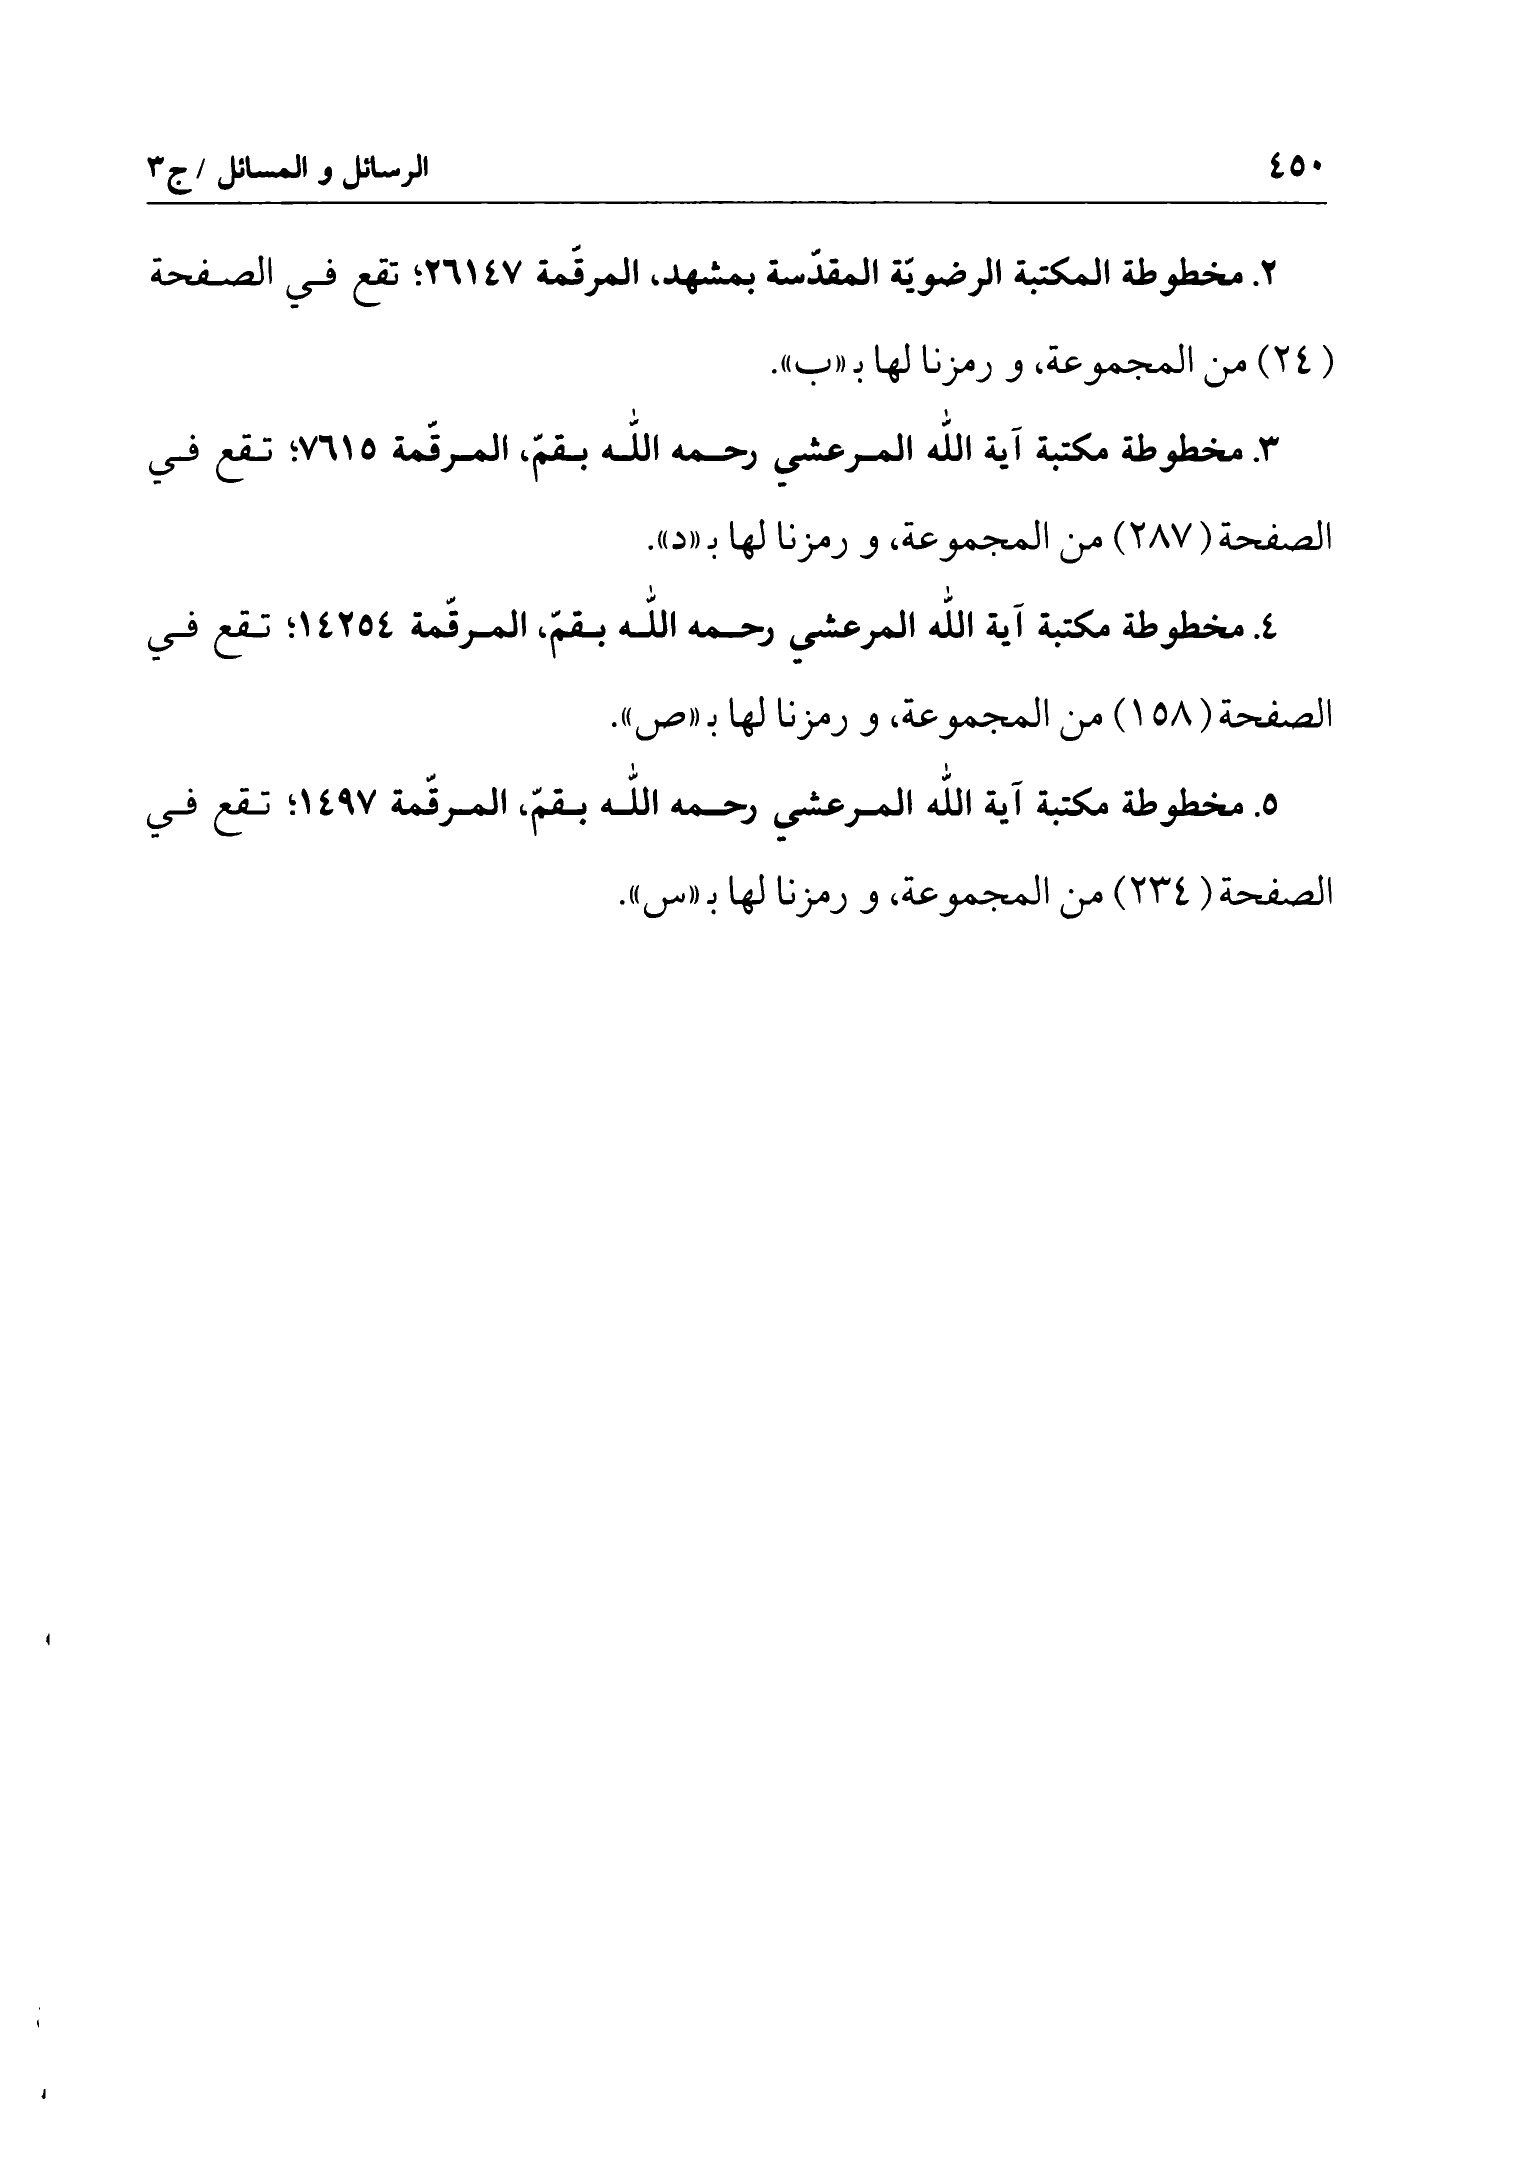 ٤٥٠ الرسائل و المسائل / ج٣
٢. مخطوطة المكتبة الرضويّة المقدّسة بمشهد، المرقّمة ٢٦١٤٧؛ تقع في الصفحة
(٢٤) من المجموعة، و رمزنا لها بـ«ب».
٣. مخطوطة مكتبة آية اللّٰه المرعشي رحمه اللّٰه بقمّ، المرقّمة ٧٦١٥؛ تقع في
الصفحة (٢٨٧) من المجموعة، و رمزنا لها بـ«د».
٤. مخطوطة مكتبة آية اللّٰه المرعشي رحمه اللّٰه بقمّ، المرقّمة ١٤٢٥٤؛ تقع في
الصفحة (١٥٨) من المجموعة، و رمزنا لها بـ«ص».
٥. مخطوطة مكتبة آية اللّٰه المرعشي رحمه اللّٰه بقمّ، المرقّمة ١٤٩٧؛ تقع في
الصفحة (٢٣٤) من المجموعة، و رمزنا لها بـ«س».